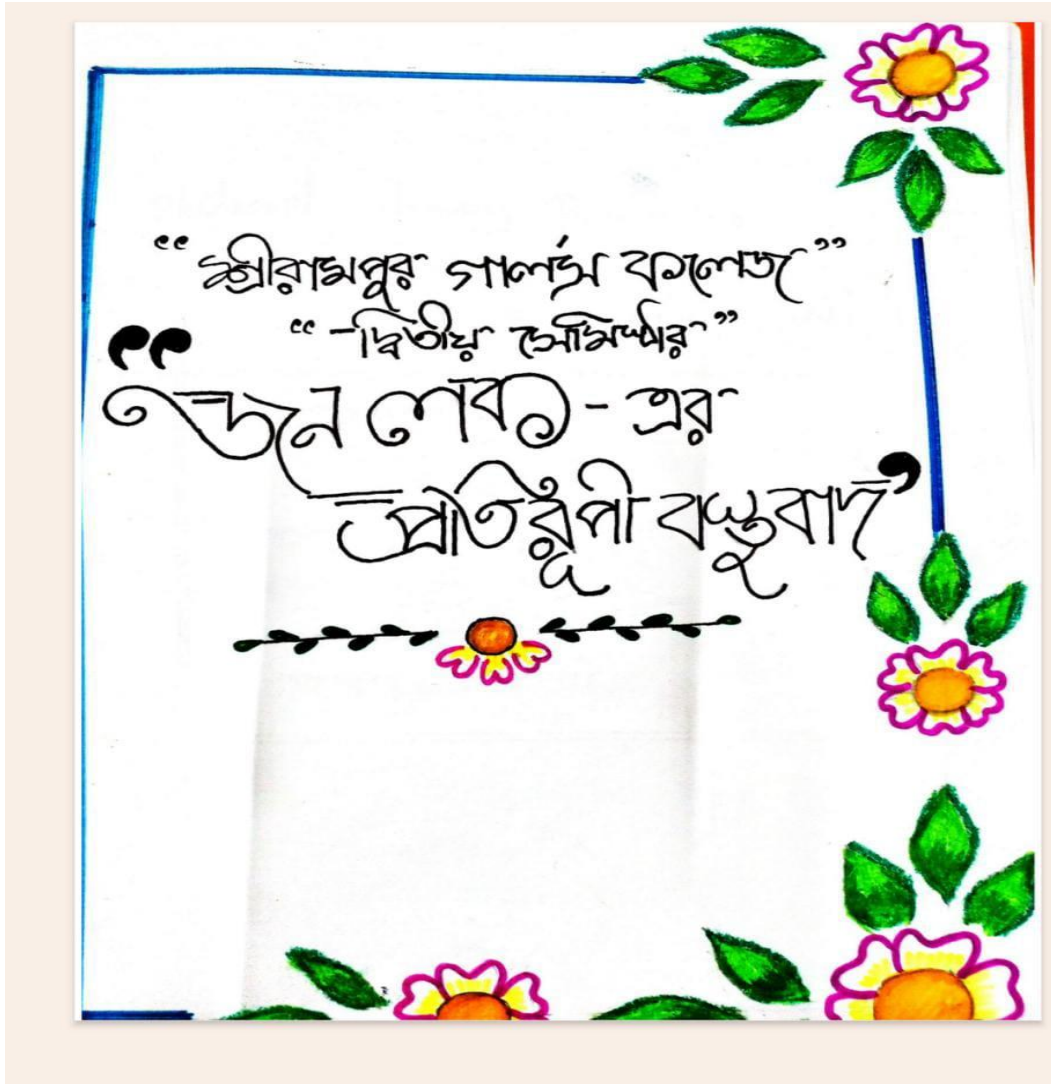 “শ্রীরামপুর গার্লস কলেজ”
“দ্বিতীয় সেমিস্টার”
“জন লক - এর
প্রতিরূপী বস্তুবাদ’